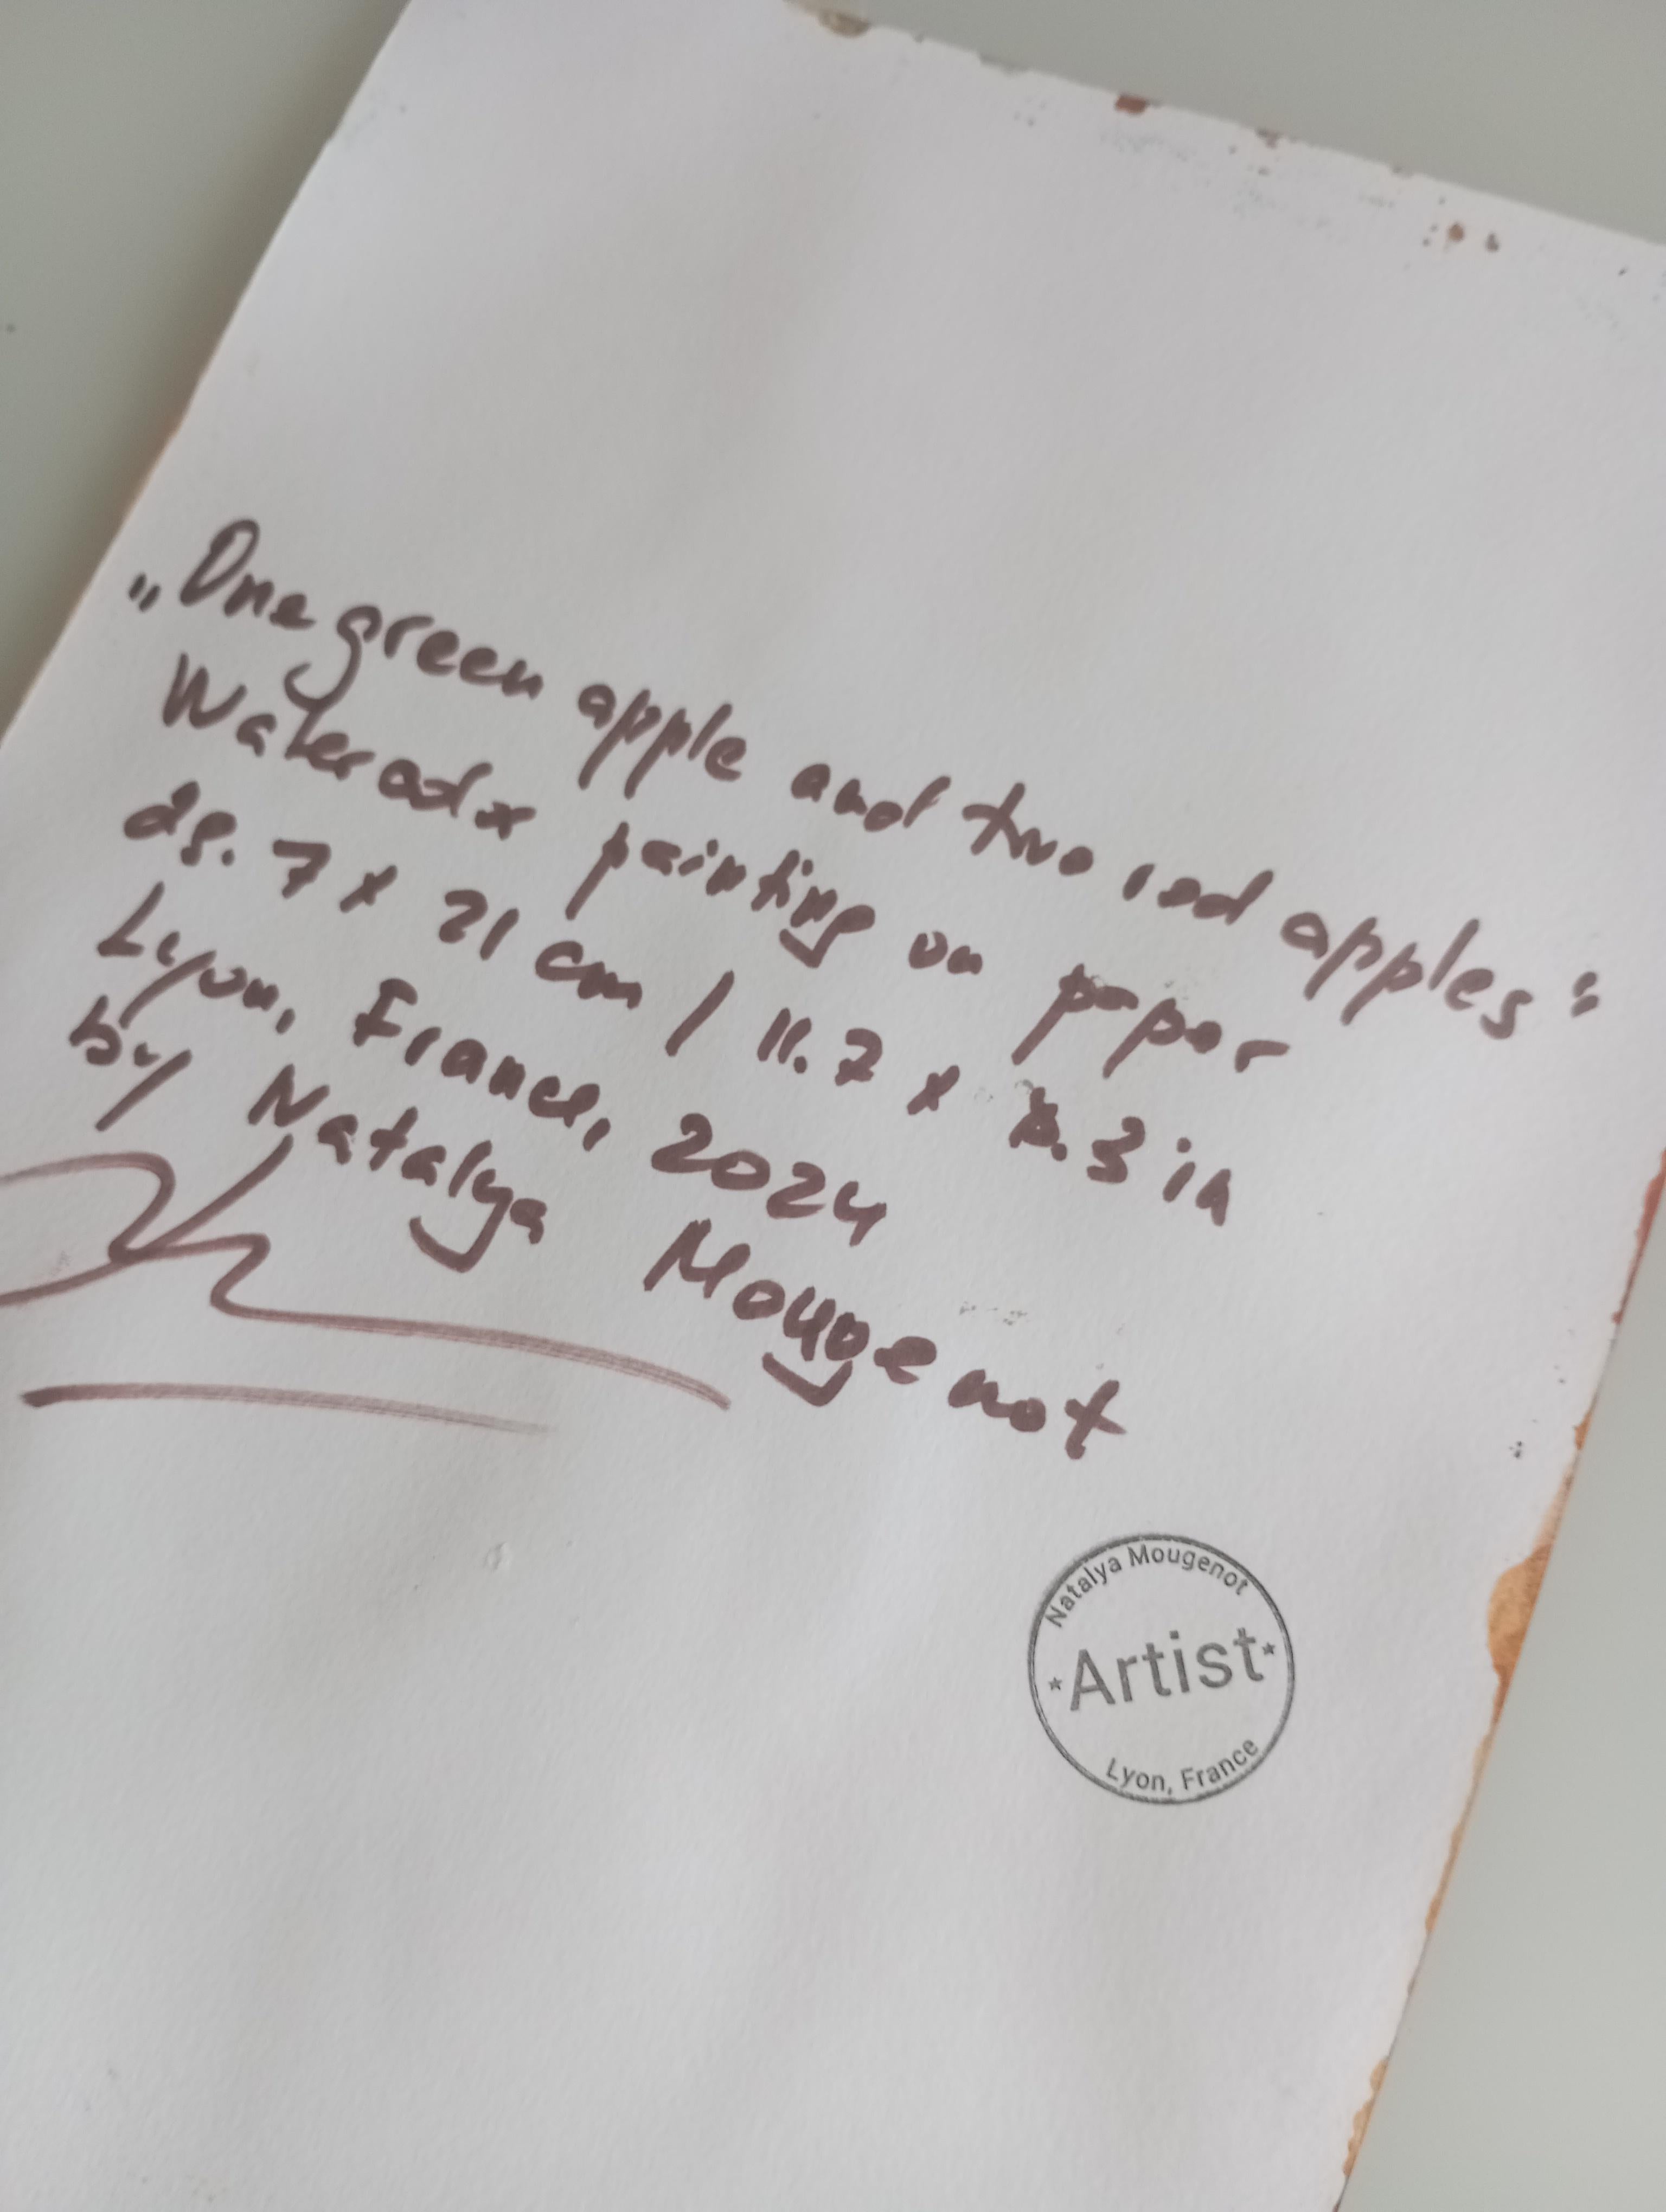 „One green apple and two red apples"
Watercolor painting on paper
29.7 x 21 cm / 11.7 x 8.3 in
Lyon, France, 2024
by Natalya Mougenot
Natalya Mougenot
*Artist*
Lyon, France